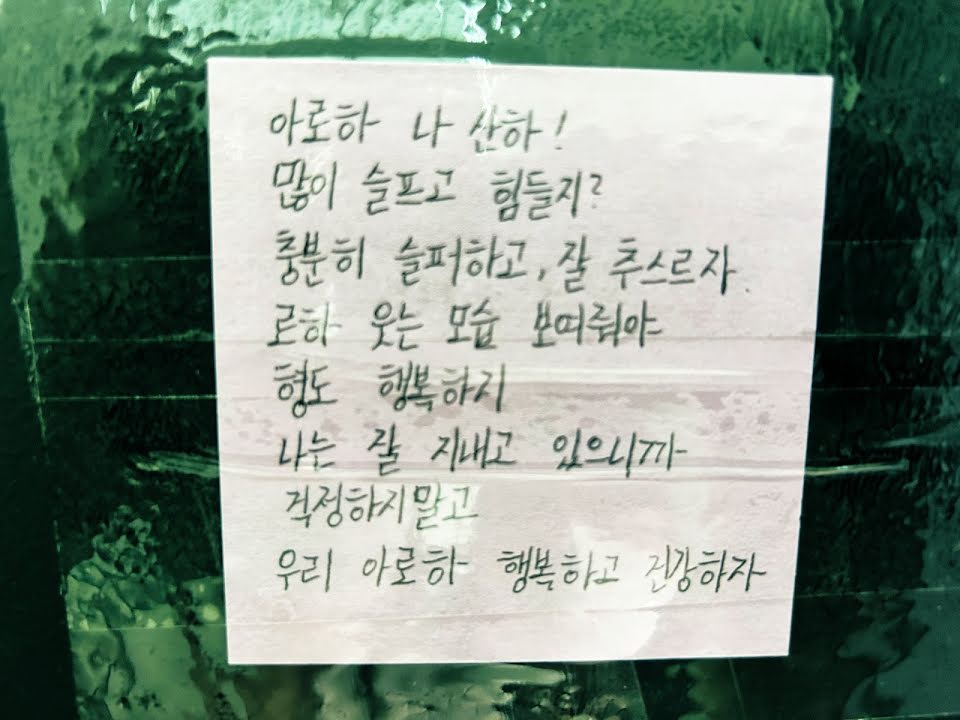 아로하 나 산하!
많이 슬프고 힘들지?
충분히 슬퍼하고, 잘 추스르자.
로하 웃는 모습 보여줘야
형도 행복하지
나는 잘 지내고 있으니까
걱정하지말고
우리 아로하 행복하고 건강하자